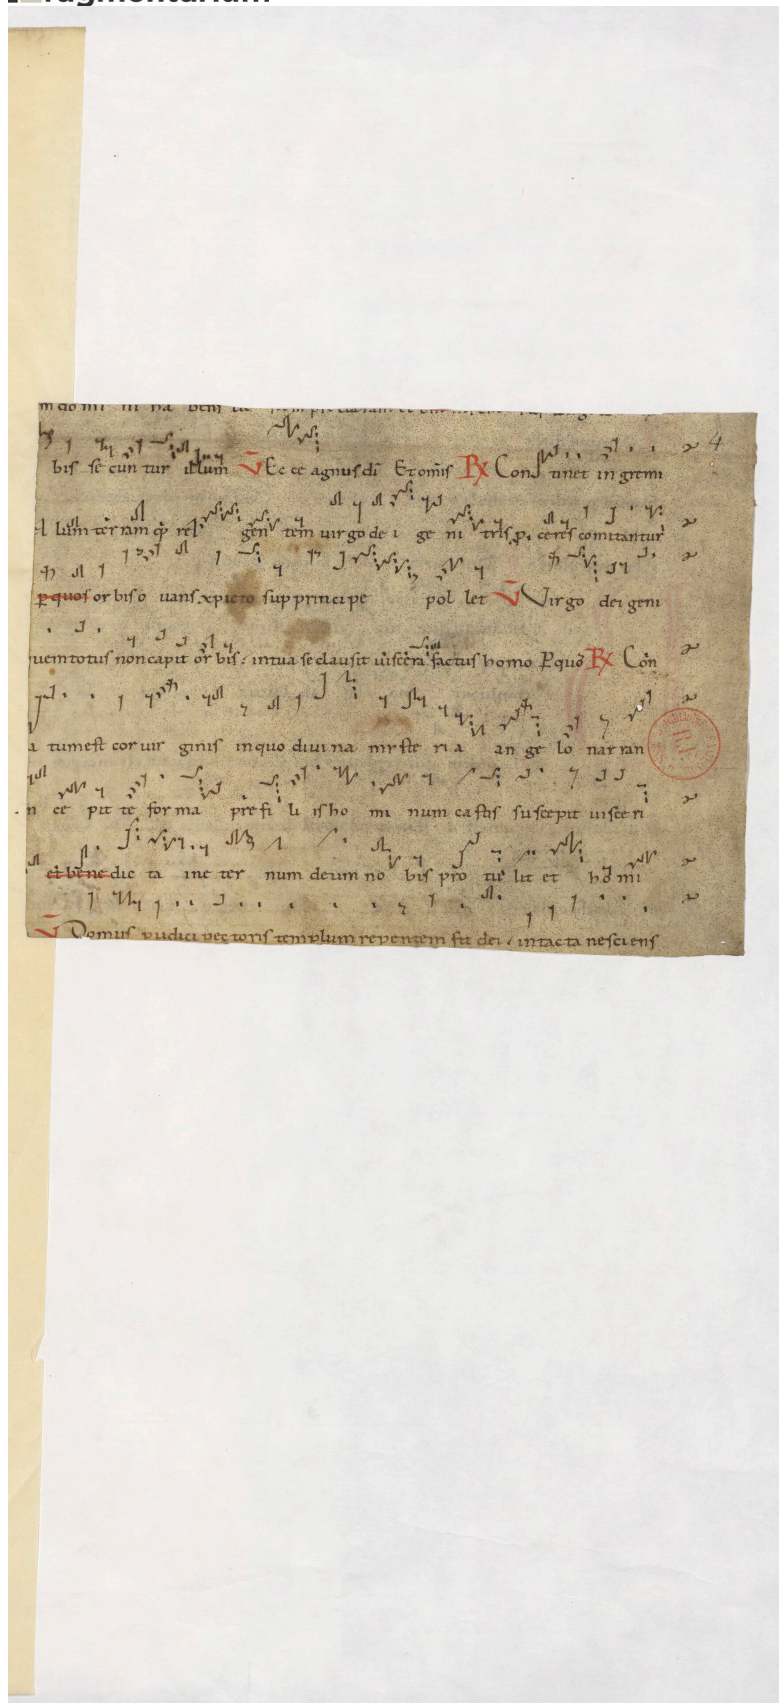 bis se cun tur illum V Ec ce agnus di Et omis Rx Con tinet in gremi
lum ter ram q rel gen tem virgo de i ge ni tris p ceres comitantur
p quos or bis o uans xpicto sup principe pol let V Virgo dei geni
uem totus non capit or bis : in tua se clausit uiscera factus homo P quo Rx Con
a tum est cor uir ginis in quo diui na miste ri a an ge lo nar ran
n ce pit te for ma pre fi li is ho mi num castis suscepit uisce ri
et bene dic ta in e ter num deum no bis pro tu lit et ho mi
V Domus pudici pectoris templum repentem fit dei . intacta nesciens
4